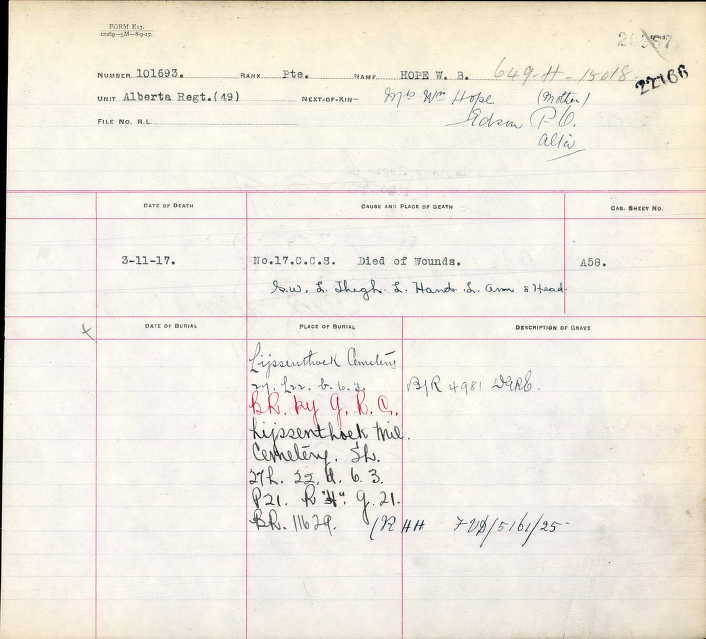 FORM E13.
NUMBER 101693. RANK Pte. NAME HOPE W. B. 649-H-15018
22166
UNIT Alberta Regt.(49) NEXT-OF-KIN— Mrs Wm Hope (Mother)
Edson P.O.
Alta
FILE NO. R.L.
DATE OF DEATH CAUSE AND PLACE OF DEATH CAS. SHEET NO.
3-11-17. No.17.C.C.S. Died of Wounds. A58.
G.W. L. Thigh L. Hand L. arm & Head
DATE OF BURIAL PLACE OF BURIAL DESCRIPTION OF GRAVE
Lijssenthoek Cemetery
27. L22. b. 6. 3. B/R 4981 DGRE.
B.R. by G. R. C.
Lijssenthoek Mil.
Cemetery. Sh.
27L. 22. d. 6. 3.
P21. R "H". G. 21.
B.R. 11629.